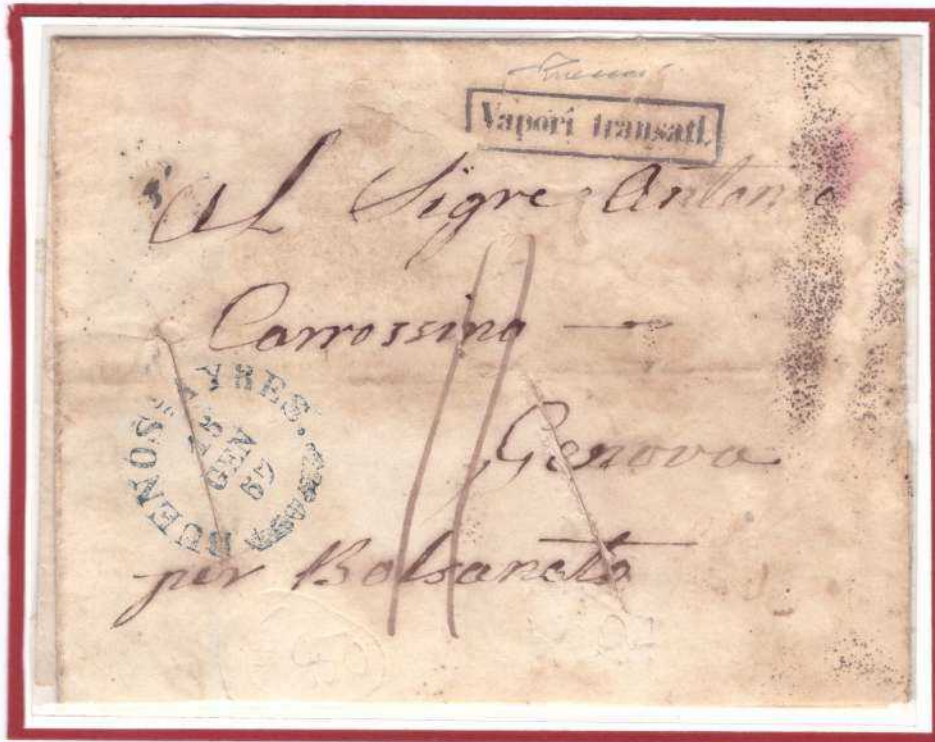 Vapori transatl.
Al Sigre Antonio
Carrossino
Genova
per Bolsaneto
11
BUENOS AYRES.